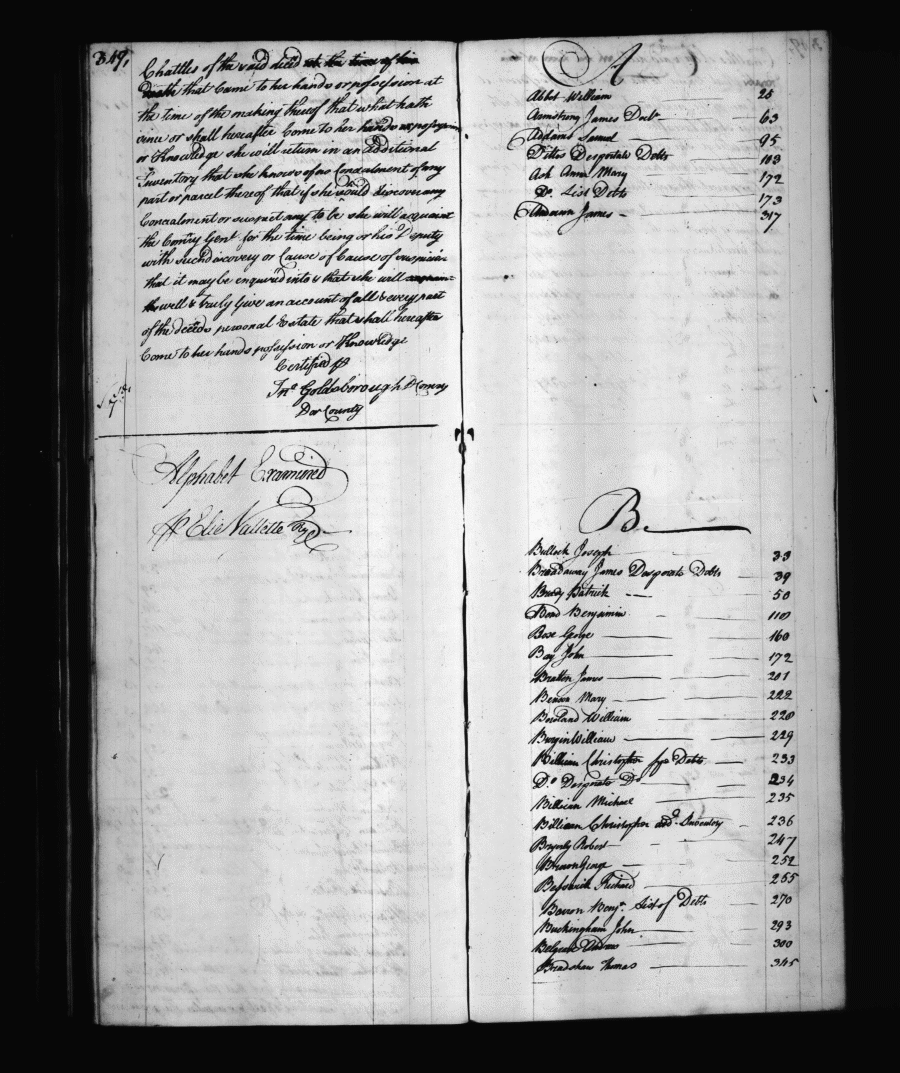 349,
Chattles of the said decd at the time of his
death that Came to her hands or possession at
the time of the making thereof that what hath
since or shall hereafter Come to her hands or possession
or Knowledge she will return in an additional
Inventory that she knows of no Concealment of any
part or parcel thereof that if she should discover any
Concealment or suspect any to be she will acquaint
the Comry Genl for the time being or his Deputy
with such discovery or Cause of Cause of suspicion
that it may be enquired into & that she will
well & truly Give an account of all & every part
of the deceds personal Estate that shall hereafter
Come to her hands possession or Knowledge
Certified
Jno Goldsborough D Comry
Dor County
Alphabet Examined
Elie Vallette Regr
A
Abbot William 25
Armstrong James Doctr 63
Addams Samuel 95
Ditto Desperate Debts 103
Ash Anna Mary 172
Do List Debts 173
Anderson James 317
B.
Bullock Joseph 33
Broadaway James Desperate Debts 39
Brady Patrick 50
Bond Benjamin 110
Bose George 160
Bay John 172
Bratton James 201
Benson Mary 222
Boroland William 220
Burgin William 229
Billican Christopher Debts 233
Do Desperate Do 234
Billican Michael 235
Billican Christopher add. Inventory 236
Beverly Robert 247
George 252
Beswick Richard 265
Barron Benjn. List of Debts 270
Buckingham John 293
Andrew 300
Bradshaw Thomas 345